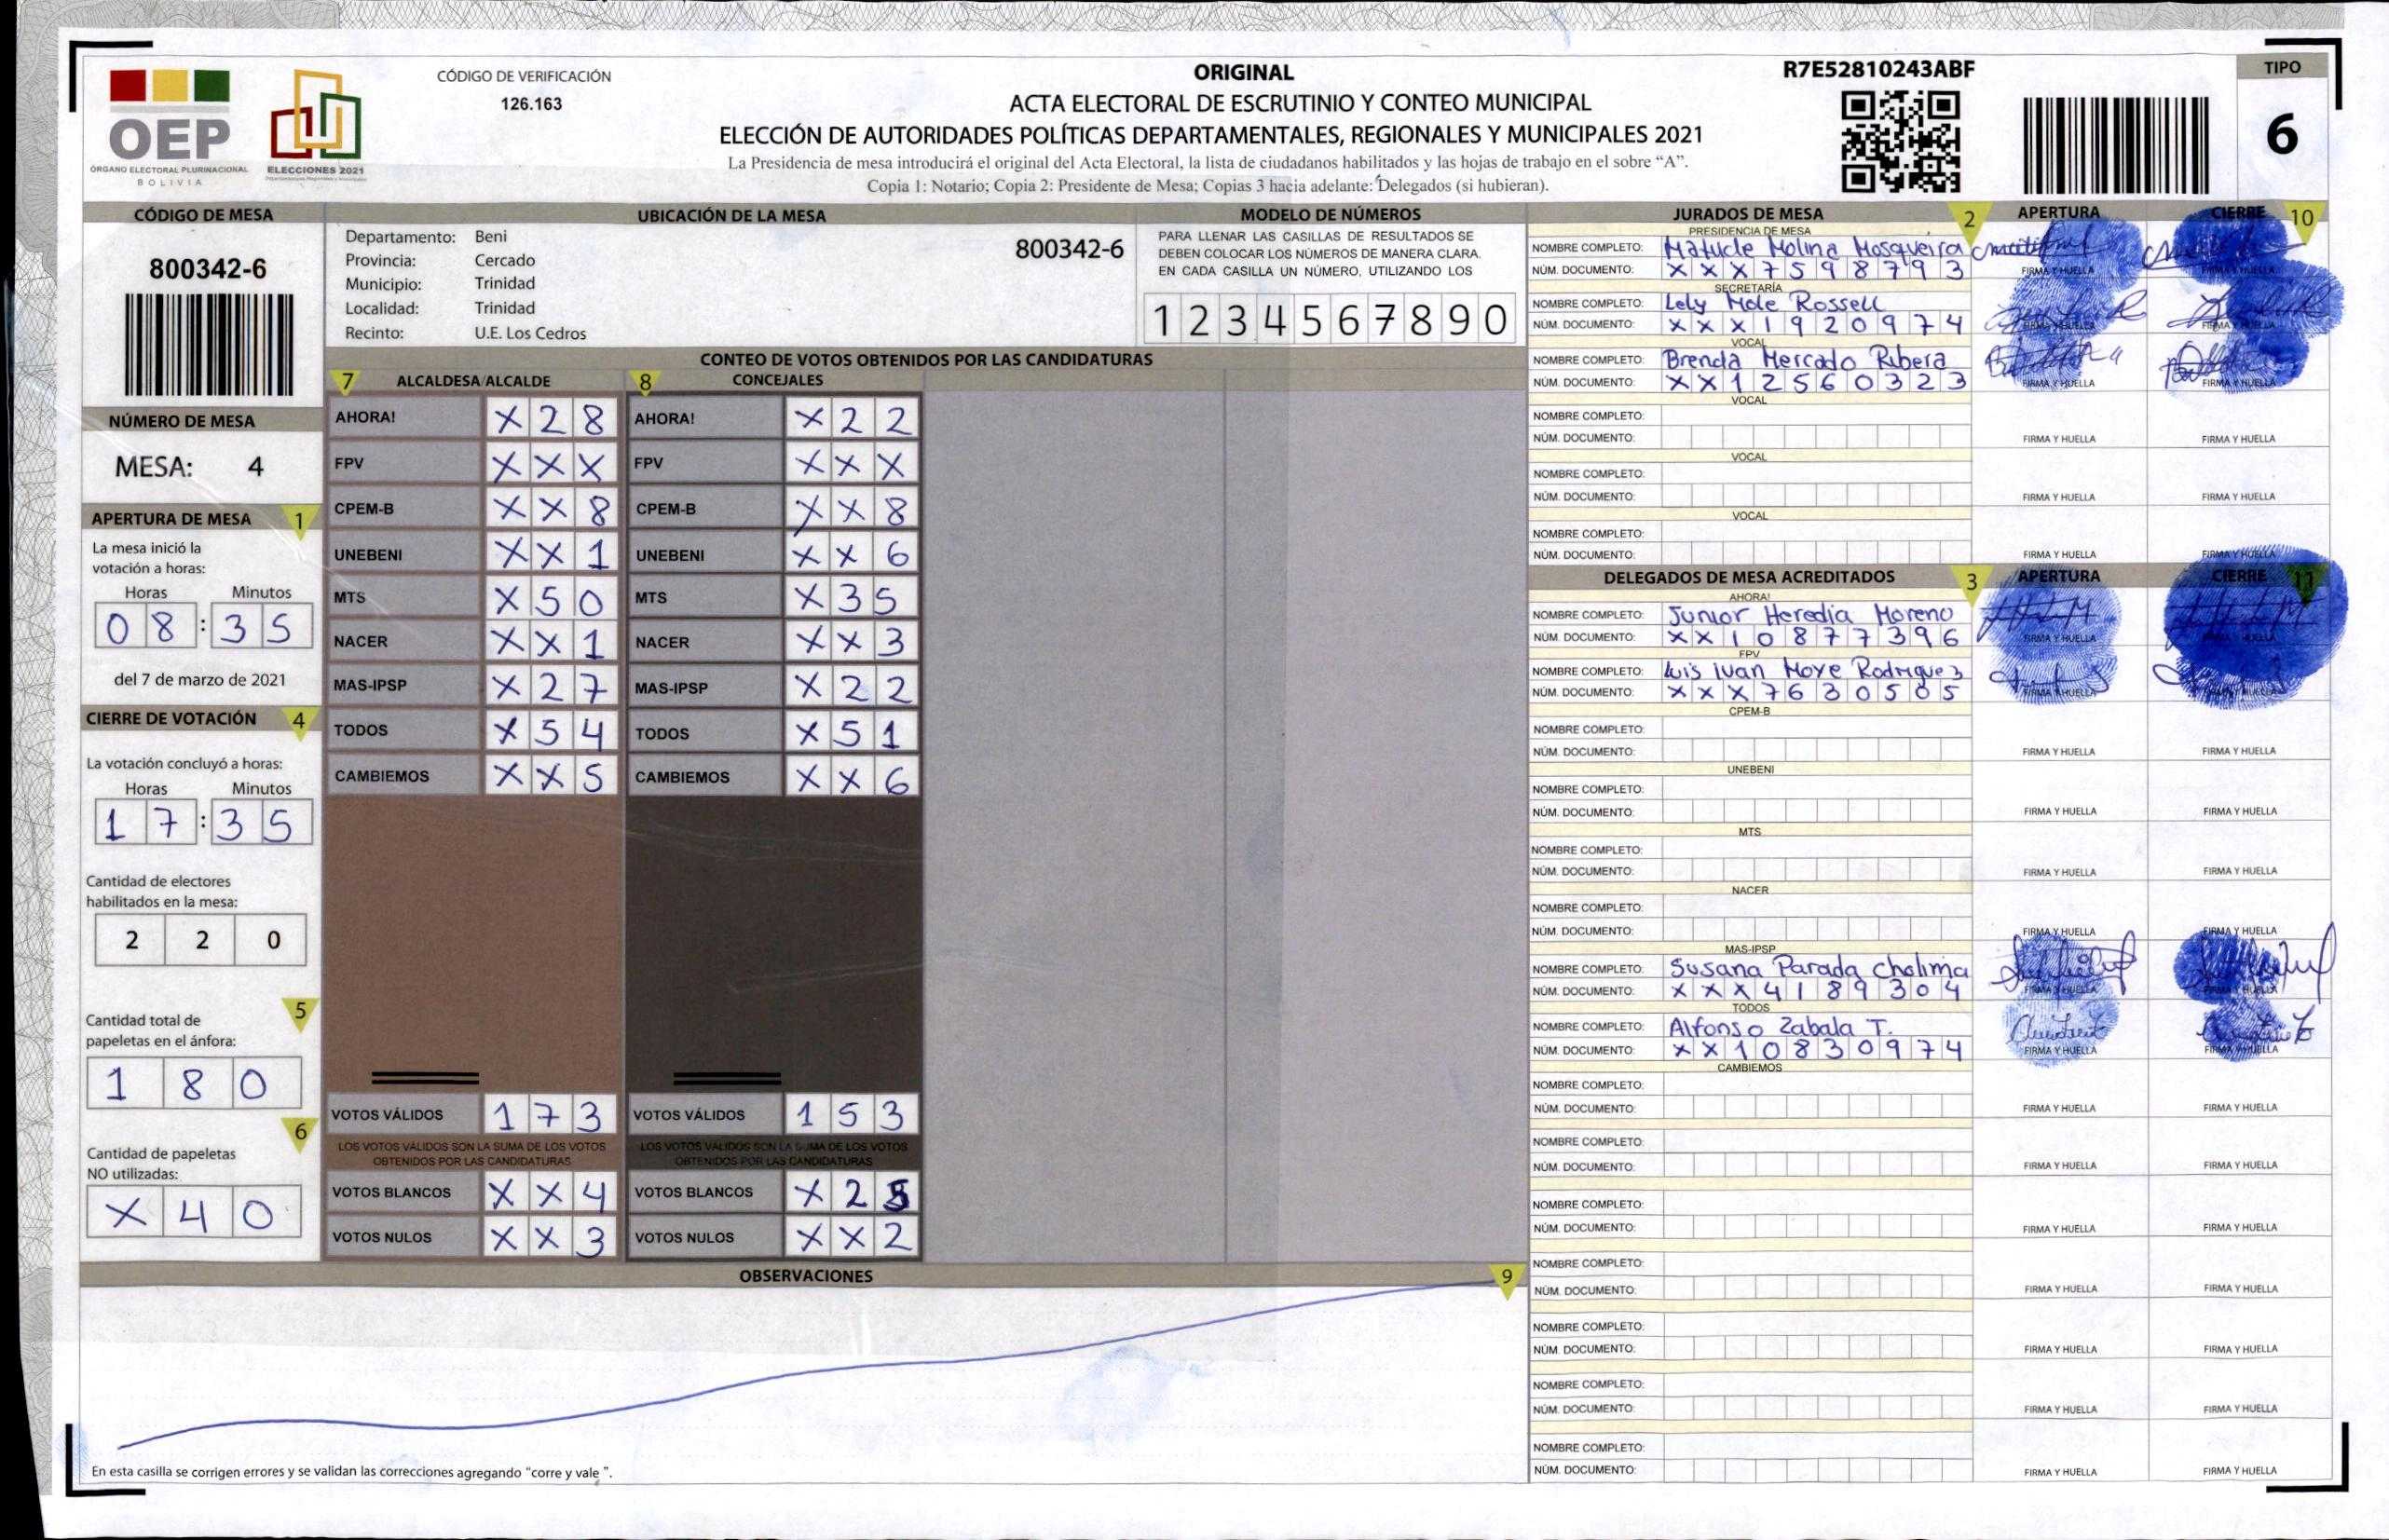 OEP
ÓRGANO ELECTORAL PLURINACIONAL
BOLIVIA
ELECCIONES 2021
CÓDIGO DE VERIFICACIÓN
126.163
ORIGINAL
ACTA ELECTORAL DE ESCRUTINIO Y CONTEO MUNICIPAL
ELECCIÓN DE AUTORIDADES POLÍTICAS DEPARTAMENTALES, REGIONALES Y MUNICIPALES 2021
La Presidencia de mesa introducirá el original del Acta Electoral, la lista de ciudadanos habilitados y las hojas de trabajo en el sobre “A”.
Copia 1: Notario; Copia 2: Presidente de Mesa; Copias 3 hacia adelante: Delegados (si hubieran).
R7E52810243ABF
TIPO
6
CÓDIGO DE MESA
800342-6
NÚMERO DE MESA
MESA: 4
APERTURA DE MESA 1
La mesa inició la
votación a horas:
Horas Minutos
08:35
del 7 de marzo de 2021
CIERRE DE VOTACIÓN 4
La votación concluyó a horas:
Horas Minutos
17:35
Cantidad de electores
habilitados en la mesa:
2 2 0
5
Cantidad total de
papeletas en el ánfora:
1 8 0
6
Cantidad de papeletas
NO utilizadas:
X 4 0
UBICACIÓN DE LA MESA
Departamento: Beni
800342-6
Provincia: Cercado
Municipio: Trinidad
Localidad: Trinidad
Recinto: U.E. Los Cedros
MODELO DE NÚMEROS
PARA LLENAR LAS CASILLAS DE RESULTADOS SE
DEBEN COLOCAR LOS NÚMEROS DE MANERA CLARA.
EN CADA CASILLA UN NÚMERO, UTILIZANDO LOS
1 2 3 4 5 6 7 8 9 0
CONTEO DE VOTOS OBTENIDOS POR LAS CANDIDATURAS
7 ALCALDESA/ALCALDE 8 CONCEJALES
AHORA! X 2 8 AHORA! X 2 2
FPV X X X FPV X X X
CPEM-B X X 8 CPEM-B X X 8
UNEBENI X X 1 UNEBENI X X 6
MTS X 5 0 MTS X 3 5
NACER X X 1 NACER X X 3
MAS-IPSP X 2 7 MAS-IPSP X 2 2
TODOS X 5 4 TODOS X 5 1
CAMBIEMOS X X 5 CAMBIEMOS X X 6
VOTOS VÁLIDOS 1 7 3 VOTOS VÁLIDOS 1 5 3
LOS VOTOS VÁLIDOS SON LA SUMA DE LOS VOTOS LOS VOTOS VÁLIDOS SON LA SUMA DE LOS VOTOS
OBTENIDOS POR LAS CANDIDATURAS OBTENIDOS POR LAS CANDIDATURAS
VOTOS BLANCOS X X 4 VOTOS BLANCOS X 2 5
VOTOS NULOS X X 3 VOTOS NULOS X X 2
OBSERVACIONES 9
En esta casilla se corrigen errores y se validan las correcciones agregando “corre y vale ”.
JURADOS DE MESA 2 APERTURA CIERRE 10
PRESIDENCIA DE MESA
NOMBRE COMPLETO: Matilde Molina Mosqueira
NÚM. DOCUMENTO: X X X 7 5 9 8 7 9 3 FIRMA Y HUELLA FIRMA Y HUELLA
SECRETARÍA
NOMBRE COMPLETO: Lely Mole Rossell
NÚM. DOCUMENTO: X X X 1 9 2 0 9 7 4 FIRMA Y HUELLA FIRMA Y HUELLA
VOCAL
NOMBRE COMPLETO: Brenda Mercado Ribera
NÚM. DOCUMENTO: X X 1 2 5 6 0 3 2 3 FIRMA Y HUELLA FIRMA Y HUELLA
VOCAL
NOMBRE COMPLETO:
NÚM. DOCUMENTO: FIRMA Y HUELLA FIRMA Y HUELLA
VOCAL
NOMBRE COMPLETO:
NÚM. DOCUMENTO: FIRMA Y HUELLA FIRMA Y HUELLA
VOCAL
NOMBRE COMPLETO:
NÚM. DOCUMENTO: FIRMA Y HUELLA FIRMA Y HUELLA
DELEGADOS DE MESA ACREDITADOS 3 APERTURA CIERRE 11
AHORA!
NOMBRE COMPLETO: Junior Heredia Moreno
NÚM. DOCUMENTO: X X 1 0 8 7 7 3 9 6 FIRMA Y HUELLA FIRMA Y HUELLA
FPV
NOMBRE COMPLETO: Luis Ivan Moye Rodriguez
NÚM. DOCUMENTO: X X X 7 6 3 0 5 0 5 FIRMA Y HUELLA FIRMA Y HUELLA
CPEM-B
NOMBRE COMPLETO:
NÚM. DOCUMENTO: FIRMA Y HUELLA FIRMA Y HUELLA
UNEBENI
NOMBRE COMPLETO:
NÚM. DOCUMENTO: FIRMA Y HUELLA FIRMA Y HUELLA
MTS
NOMBRE COMPLETO:
NÚM. DOCUMENTO: FIRMA Y HUELLA FIRMA Y HUELLA
NACER
NOMBRE COMPLETO:
NÚM. DOCUMENTO: FIRMA Y HUELLA FIRMA Y HUELLA
MAS-IPSP
NOMBRE COMPLETO: Susana Parada Cholima
NÚM. DOCUMENTO: X X X 4 1 8 9 3 0 4 FIRMA Y HUELLA FIRMA Y HUELLA
TODOS
NOMBRE COMPLETO: Alfonso Zabala T.
NÚM. DOCUMENTO: X X 1 0 8 3 0 9 7 4 FIRMA Y HUELLA FIRMA Y HUELLA
CAMBIEMOS
NOMBRE COMPLETO:
NÚM. DOCUMENTO: FIRMA Y HUELLA FIRMA Y HUELLA
NOMBRE COMPLETO:
NÚM. DOCUMENTO: FIRMA Y HUELLA FIRMA Y HUELLA
NOMBRE COMPLETO:
NÚM. DOCUMENTO: FIRMA Y HUELLA FIRMA Y HUELLA
NOMBRE COMPLETO:
NÚM. DOCUMENTO: FIRMA Y HUELLA FIRMA Y HUELLA
NOMBRE COMPLETO:
NÚM. DOCUMENTO: FIRMA Y HUELLA FIRMA Y HUELLA
NOMBRE COMPLETO:
NÚM. DOCUMENTO: FIRMA Y HUELLA FIRMA Y HUELLA
NOMBRE COMPLETO:
NÚM. DOCUMENTO: FIRMA Y HUELLA FIRMA Y HUELLA